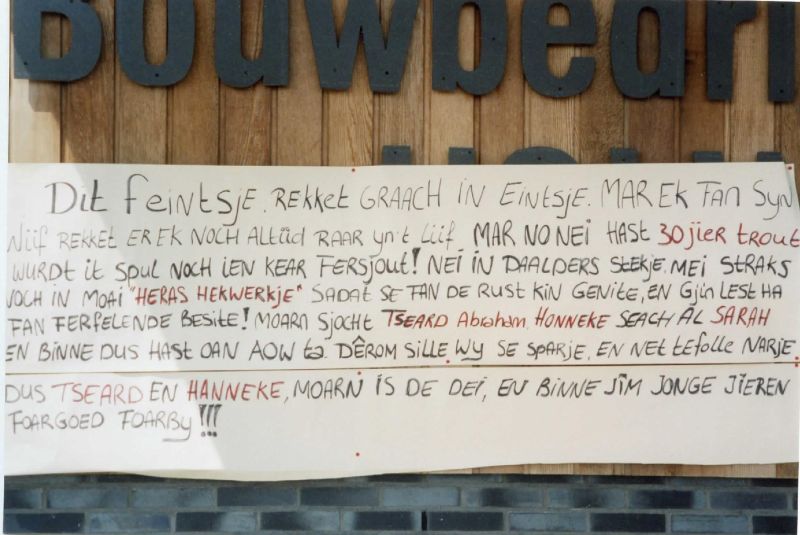 Bouwbedri
Dit feintsje. REKKET GRAACH IN EintsjE. MAR EK FAN SYN
Wiif REKKET ER EK NOCH ALtiid RAAR yn't Liif. MAR NO NEI HAST 30 jier trout
WURDt it SPUL NOCH iEN KEAR FERSJOUT! NEI IN DAALDERS StEkjE. MEI StRAKS
NOCH IN MOAI "HERAS HEKWERKje" SADAt SE FAN DE RUSt KiN GENitE, EN Gjin LESt HA
FAN FERFELENDE BESitE! MOARN SJOCHt TSEARD Abraham. HONNEKE SEACH AL SARAH
EN BINNE DUS HAST OAN AOW ta. DÊROM SILLE Wy SE SPARJE. EN NEt tEFOLLE NARJE.
DUS TSEARD EN HANNEKE, MOARN IS DE DEI, EN BINNE JIM JONGE JIEREN
FOARGOED FOARBy!!!